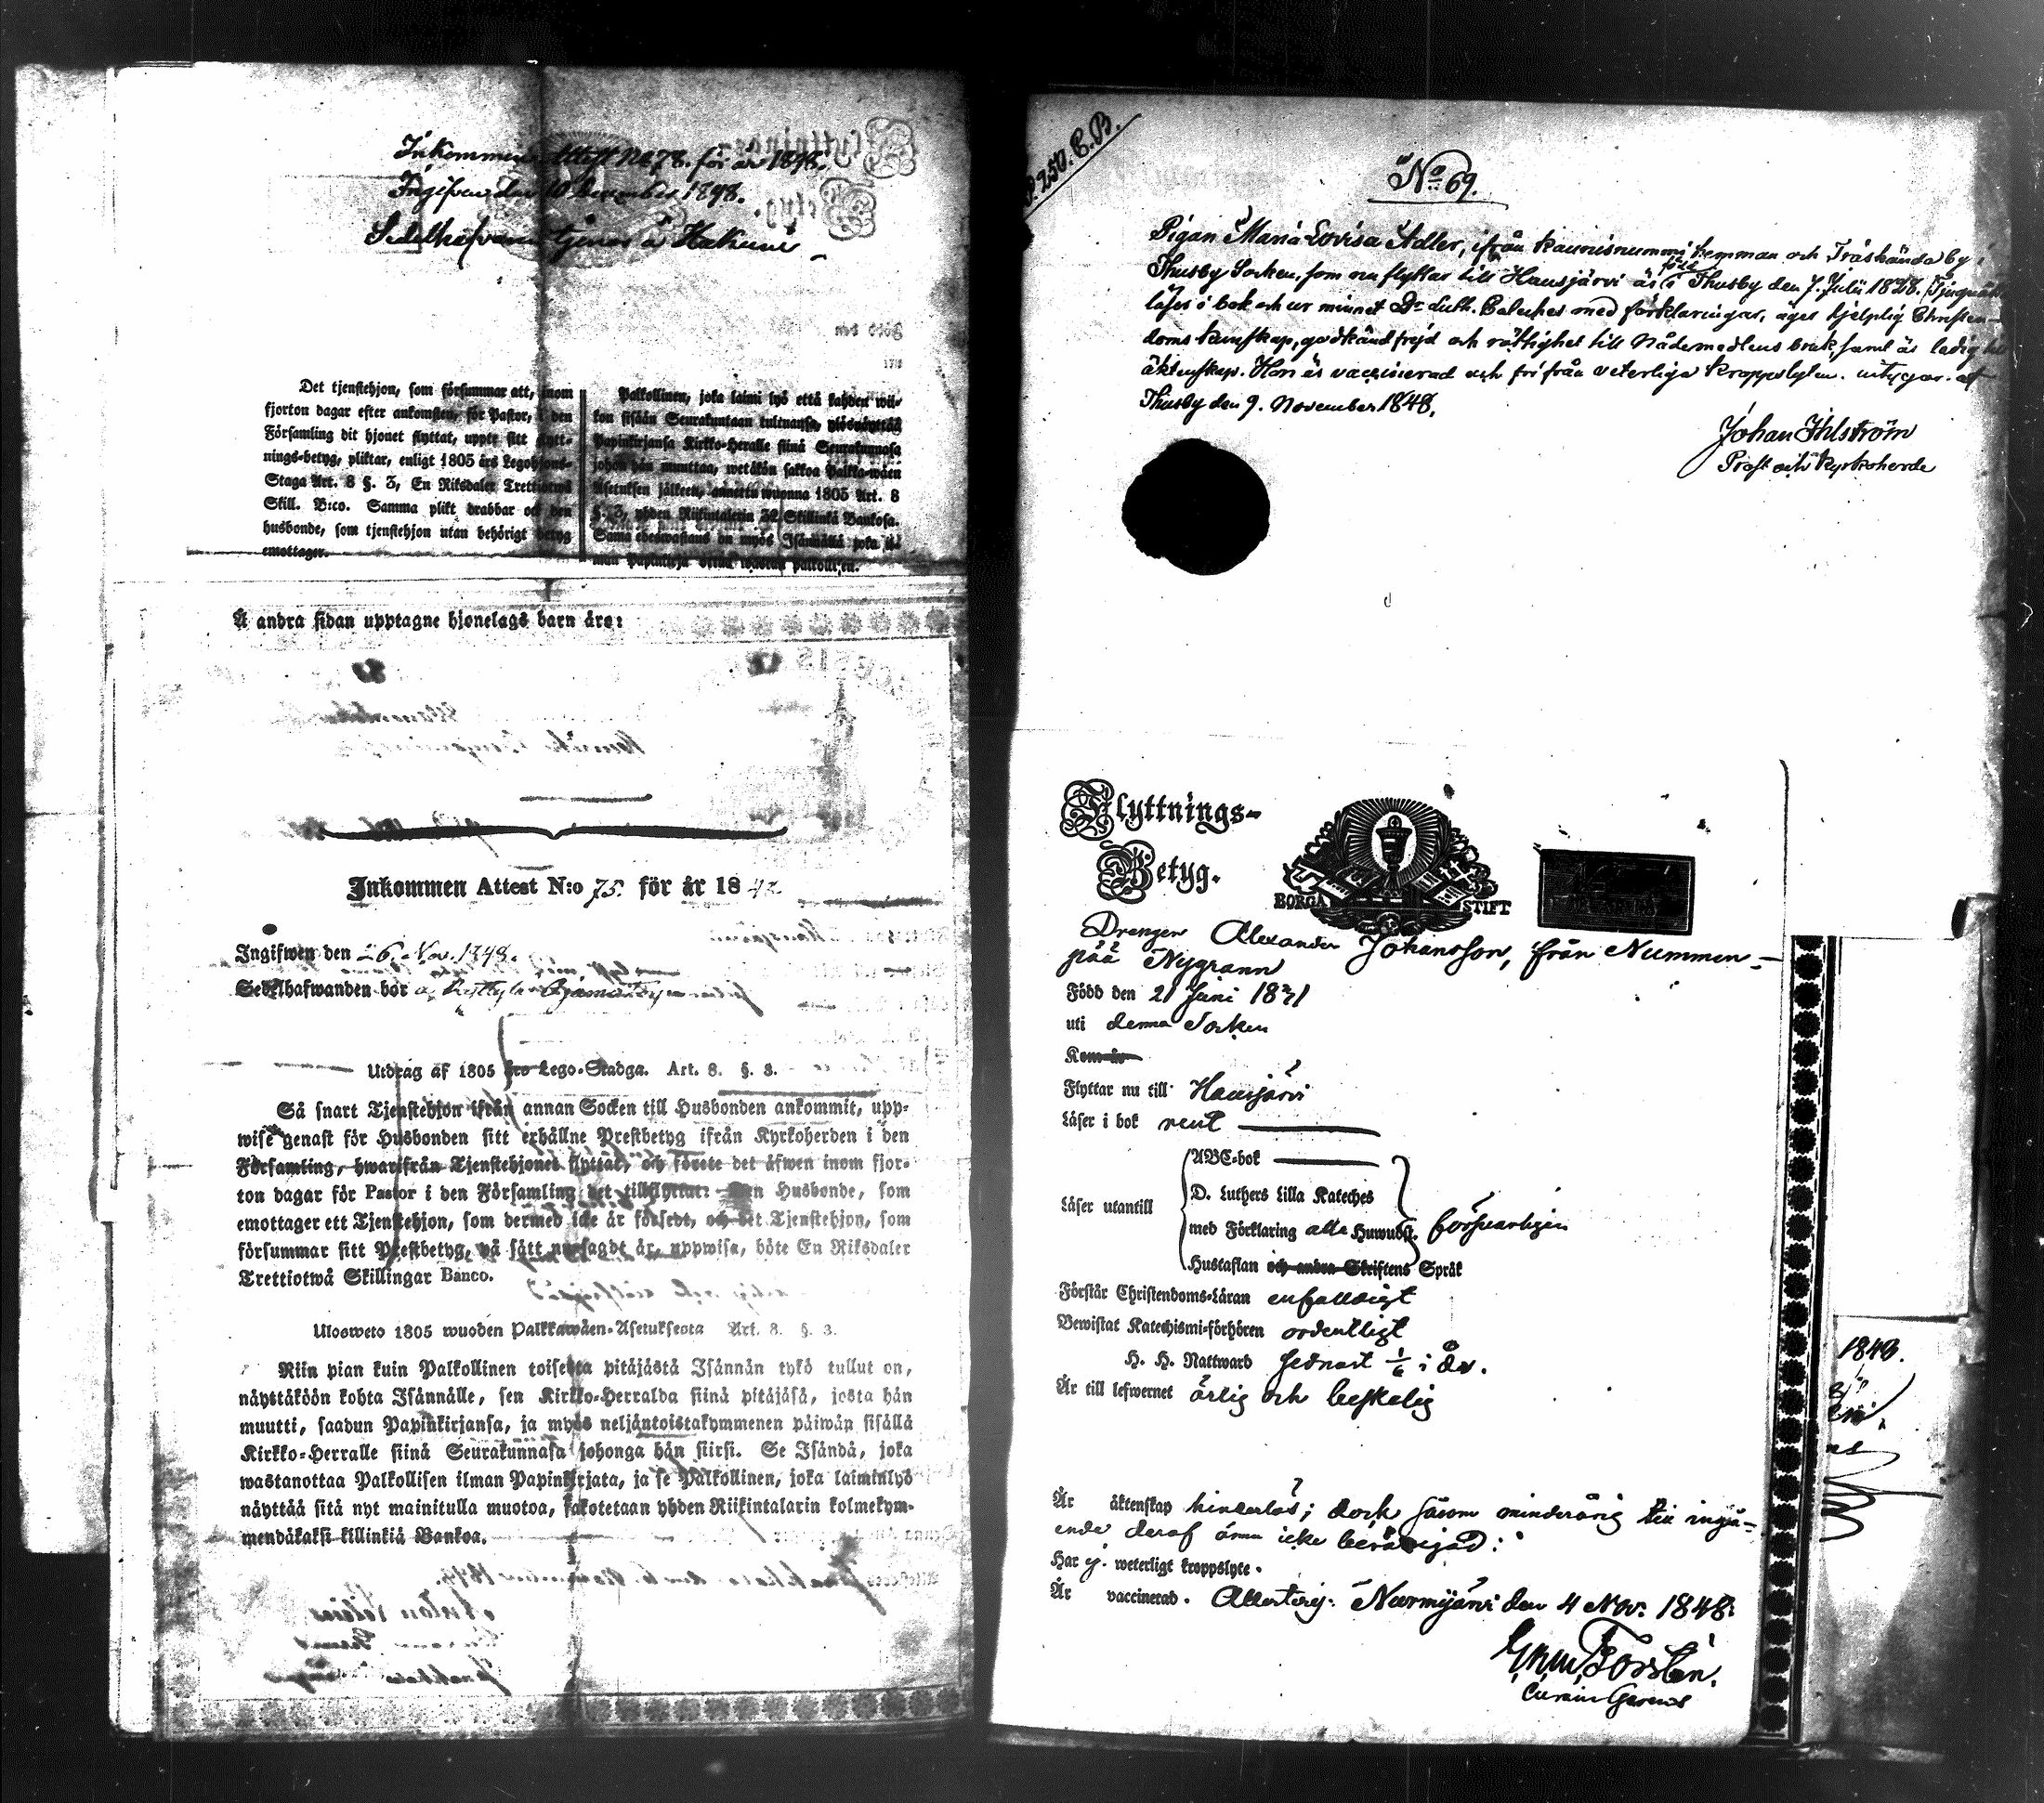 Inkommen Attest No 78. för år 1848.
Ingifven den 10 December 1848.
Sedelhafvaren tjenar å Hakuni
Flyttnings-
Betyg.
Det tjenstehjon, som försummar att, inom
fjorton dagar efter ankomsten, för Pastor, i den
Församling dit hjonet flyttat, uppte sitt flytt-
nings-betyg, pliktar, enligt 1805 års Legohjons-
Staga Art. 8 §. 3, En Riksdaler Trettiotwå
Skill. B:co. Samma plikt drabbar och den
husbonde, som tjenstehjon utan behörigt betyg
emottager.
Palkollinen, joka laimi lyö että kahden wii-
kon sisään Seurakuntaan tultuansa, ylösnäyttää
Papinkirjansa Kirkko-Heralle siinä Seurakunnasa
johon hän muuttaa, wetäkön sakkoa Palkka-wäen
Asetuksen jälkeen, annettu wuonna 1805 Art. 8
§. 3, yhden Riikintalerin 32 Skillinkiä Bankosa.
Sama edeswastaus on myös Isännällä joka il-
man Papinkirja ottaa wastan palkollisen.
Å andra sidan upptagne hjonelags barn äro:
Inkommen Attest N:o 75. för år 1848
Ingifwen den 26. Nov. 1848.
Sedelhafwanden bor å
Utdrag af 1805 års Lego-Stadga. Art. 8. §. 3.
Så snart Tjenstehjon ifrån annan Socken till Husbonden ankommit, upp-
wise genast för Husbonden sitt erhållne Prestbetyg ifrån Kyrkoherden i den
Församling, hwarifrån Tjenstehjonet flyttat, och förete det äfwen inom fjor-
ton dagar för Pastor i den Församling det tillflyttat: Den Husbonde, som
emottager ett Tjenstehjon, som dermed icke är försedt, och det Tjenstehjon, som
försummar sitt Prestbetyg, på sätt nu sagdt är, uppwisa, böte En Riksdaler
Trettiotwå Skillingar Banco.
Ulosweto 1805 wuoden Palkkawäen-Asetuksesta Art. 8. §. 3.
Niin pian kuin Palkollinen toisesta pitäjästä Isännän tykö tullut on,
näyttäköön kohta Isännälle, sen Kirkko-Herralda siinä pitäjäsä, josta hän
muutti, saadun Papinkirjansa, ja myös neljäntoistakymmenen päiwän sisällä
Kirkko-Herralle siinä Seurakunnasa johonga hän siirsi. Se Isändä, joka
wastanottaa Palkollisen ilman Papinkirjata, ja se Palkollinen, joka laiminlyö
näyttää sitä nyt mainitulla muotoa, sakotetaan yhden Riikintalarin kolmekym-
mendäkaksi killinkiä Bankoa.
P. 250. C.B.
No 69.
Pigan Maria Lovisa Adler, ifrån Kaunisnummi hemman och Träskända by i
Thusby Socken, som nu flyttar till Hausjärvi är född i Thusby den 7. Julii 1828.
läser i bok och ur minnet Dr. Luth. Cateches med förklaringar, äger hjelplig Christen-
doms kunskap, godkänd frejd och rättighet till Nådemedlens bruk, samt är ledig till
äktenskap. Hon är vaccinerad och fri från veterliga kroppslyten. intygar. af
Thusby den 9. November 1848.
Johan Ihlström
Prost och Kyrkoherde
Flyttnings-
Betyg.
BORGÅ STIFT
Drengen Alexander Johansson, från Nummen-
pää Nygrann
Född den 21 Juni 1831
uti denna Socken
Kom år
Flyttar nu till Hausjärvi
Läser i bok rent
Läser utantill
ABC-bok
D. Luthers Lilla Kateches
med Förklaring alla Huwudst. försvarligen
Hustaflan och andra Skriftens Språk
Förstår Christendoms-Läran enfalldigt
Bewistat Katechismi-förhören ordentligt
H. H. Nattward sednast 1/6 i år.
Är till lefwernet ärlig och beskelig
Är äktenskap hinderlös; dock såsom minderårig till ingå-
ende deraf ännu icke berättigad.
Har ej weterligt kroppslyte.
Är vaccinerad. Attesterij: Nurmijärvi den 4 Nov. 1848.
Forstén.
Curam Gerens
1848.